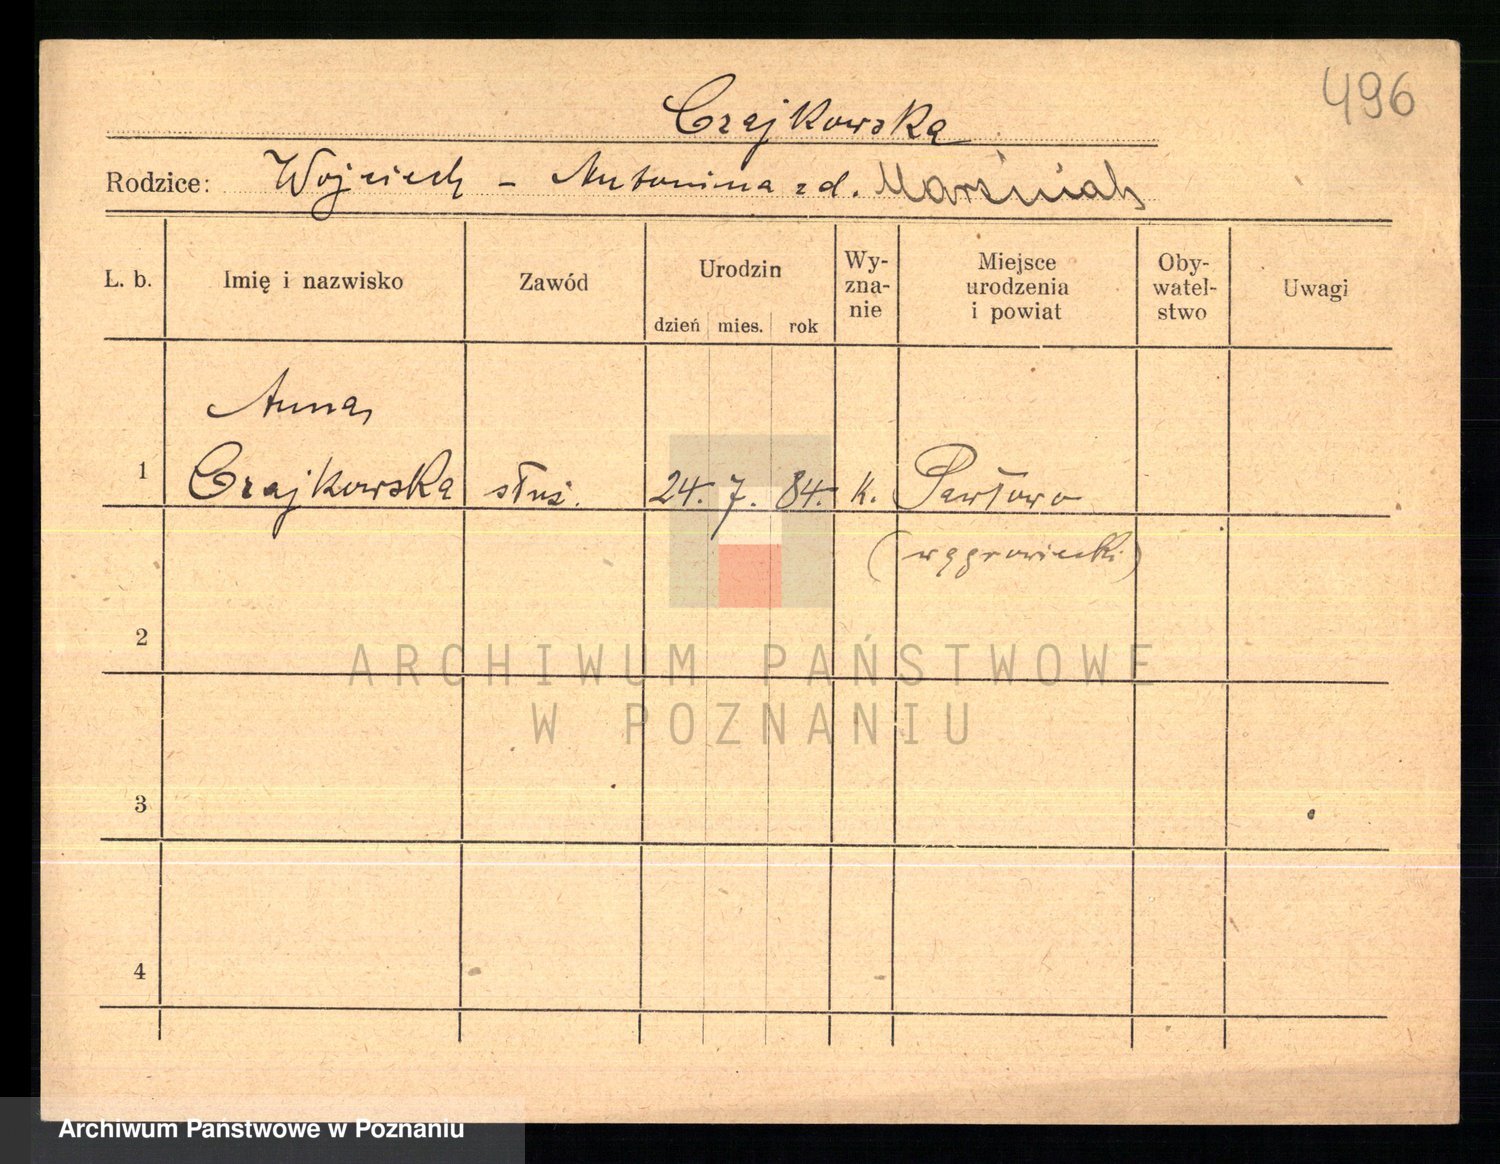 496
Czajkowska
Rodzice: Wojciech - Antonina z d. Marsiniak
L. b. Imię i nazwisko Zawód Urodzin dzień mies. rok Wy-zna-nie Miejsce urodzenia i powiat Oby-watel-stwo Uwagi
Anna
1 Czajkowska służ. 24. 7. 84. k. Pawłowo
(wągrowiecki)
2
ARCHIWUM PAŃSTWOWE
W POZNANIU
3
4
Archiwum Państwowe w Poznaniu